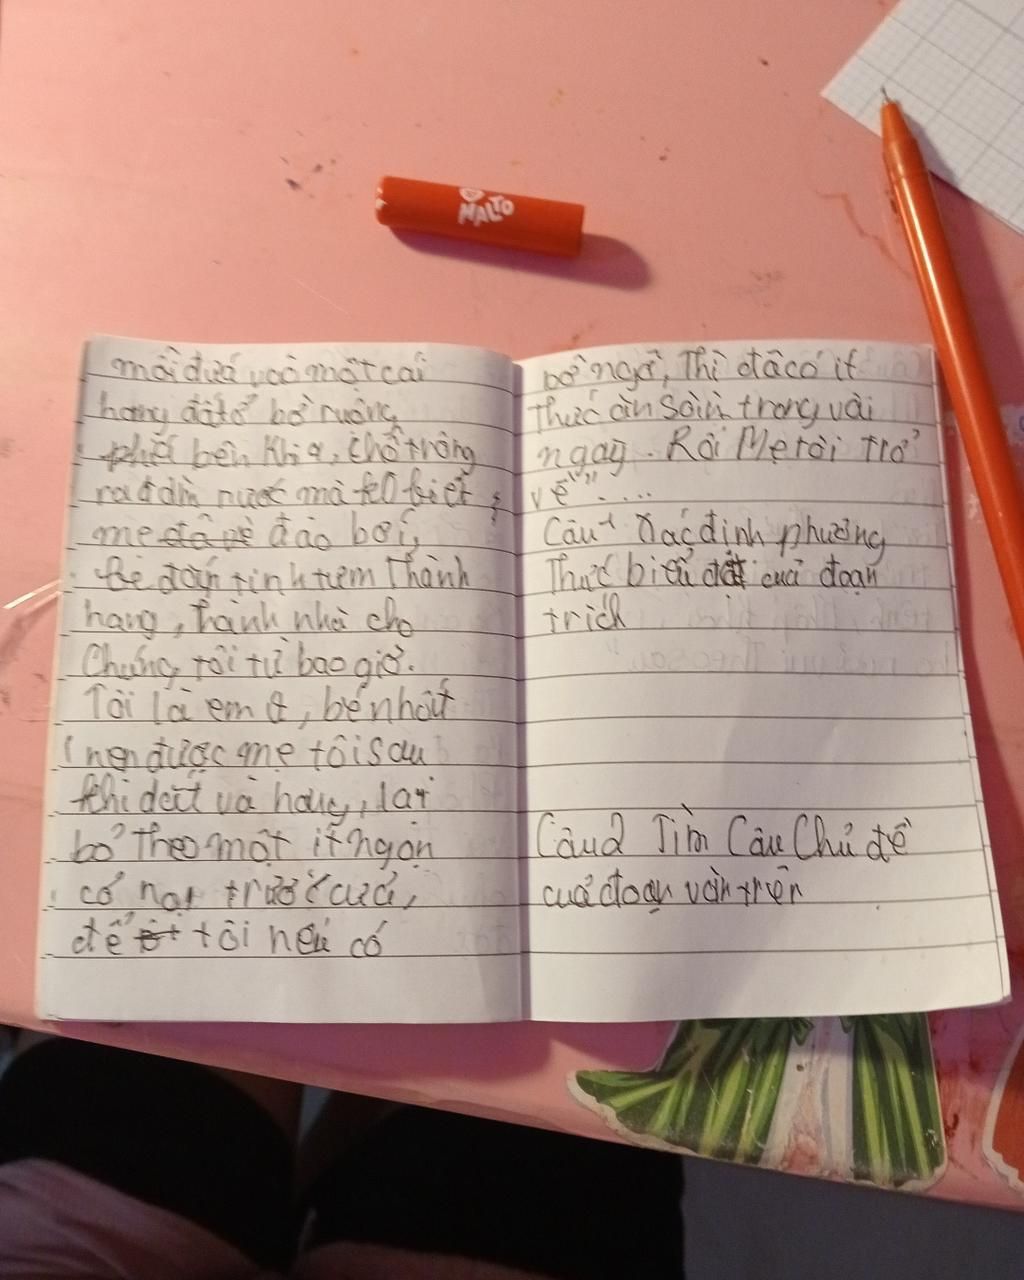 MALTO
mỗi đứa vào một cái
hang đất ở bờ ruộng
phía bên kia, chỗ trông
ra đầm nước mà không biết
mẹ đào bới,
Be đắp tinh tươm thành
hang, thành nhà cho
Chúng tôi từ bao giờ.
Tôi là em út, bé nhất
nên được mẹ tôi sau
khi dắt vào hang, lại
bỏ theo một ít ngọn
cỏ non trước cửa,
để tôi nếu có
bỡ ngỡ, Thì đã có ít
thức ăn sẵn trong vài
ngày. Rồi Mẹ tôi trở
về"....
Câu 1 Xác định phương
Thức biểu đạt của đoạn
trích
Câu 2 Tìm Câu Chủ đề
của đoạn văn trên